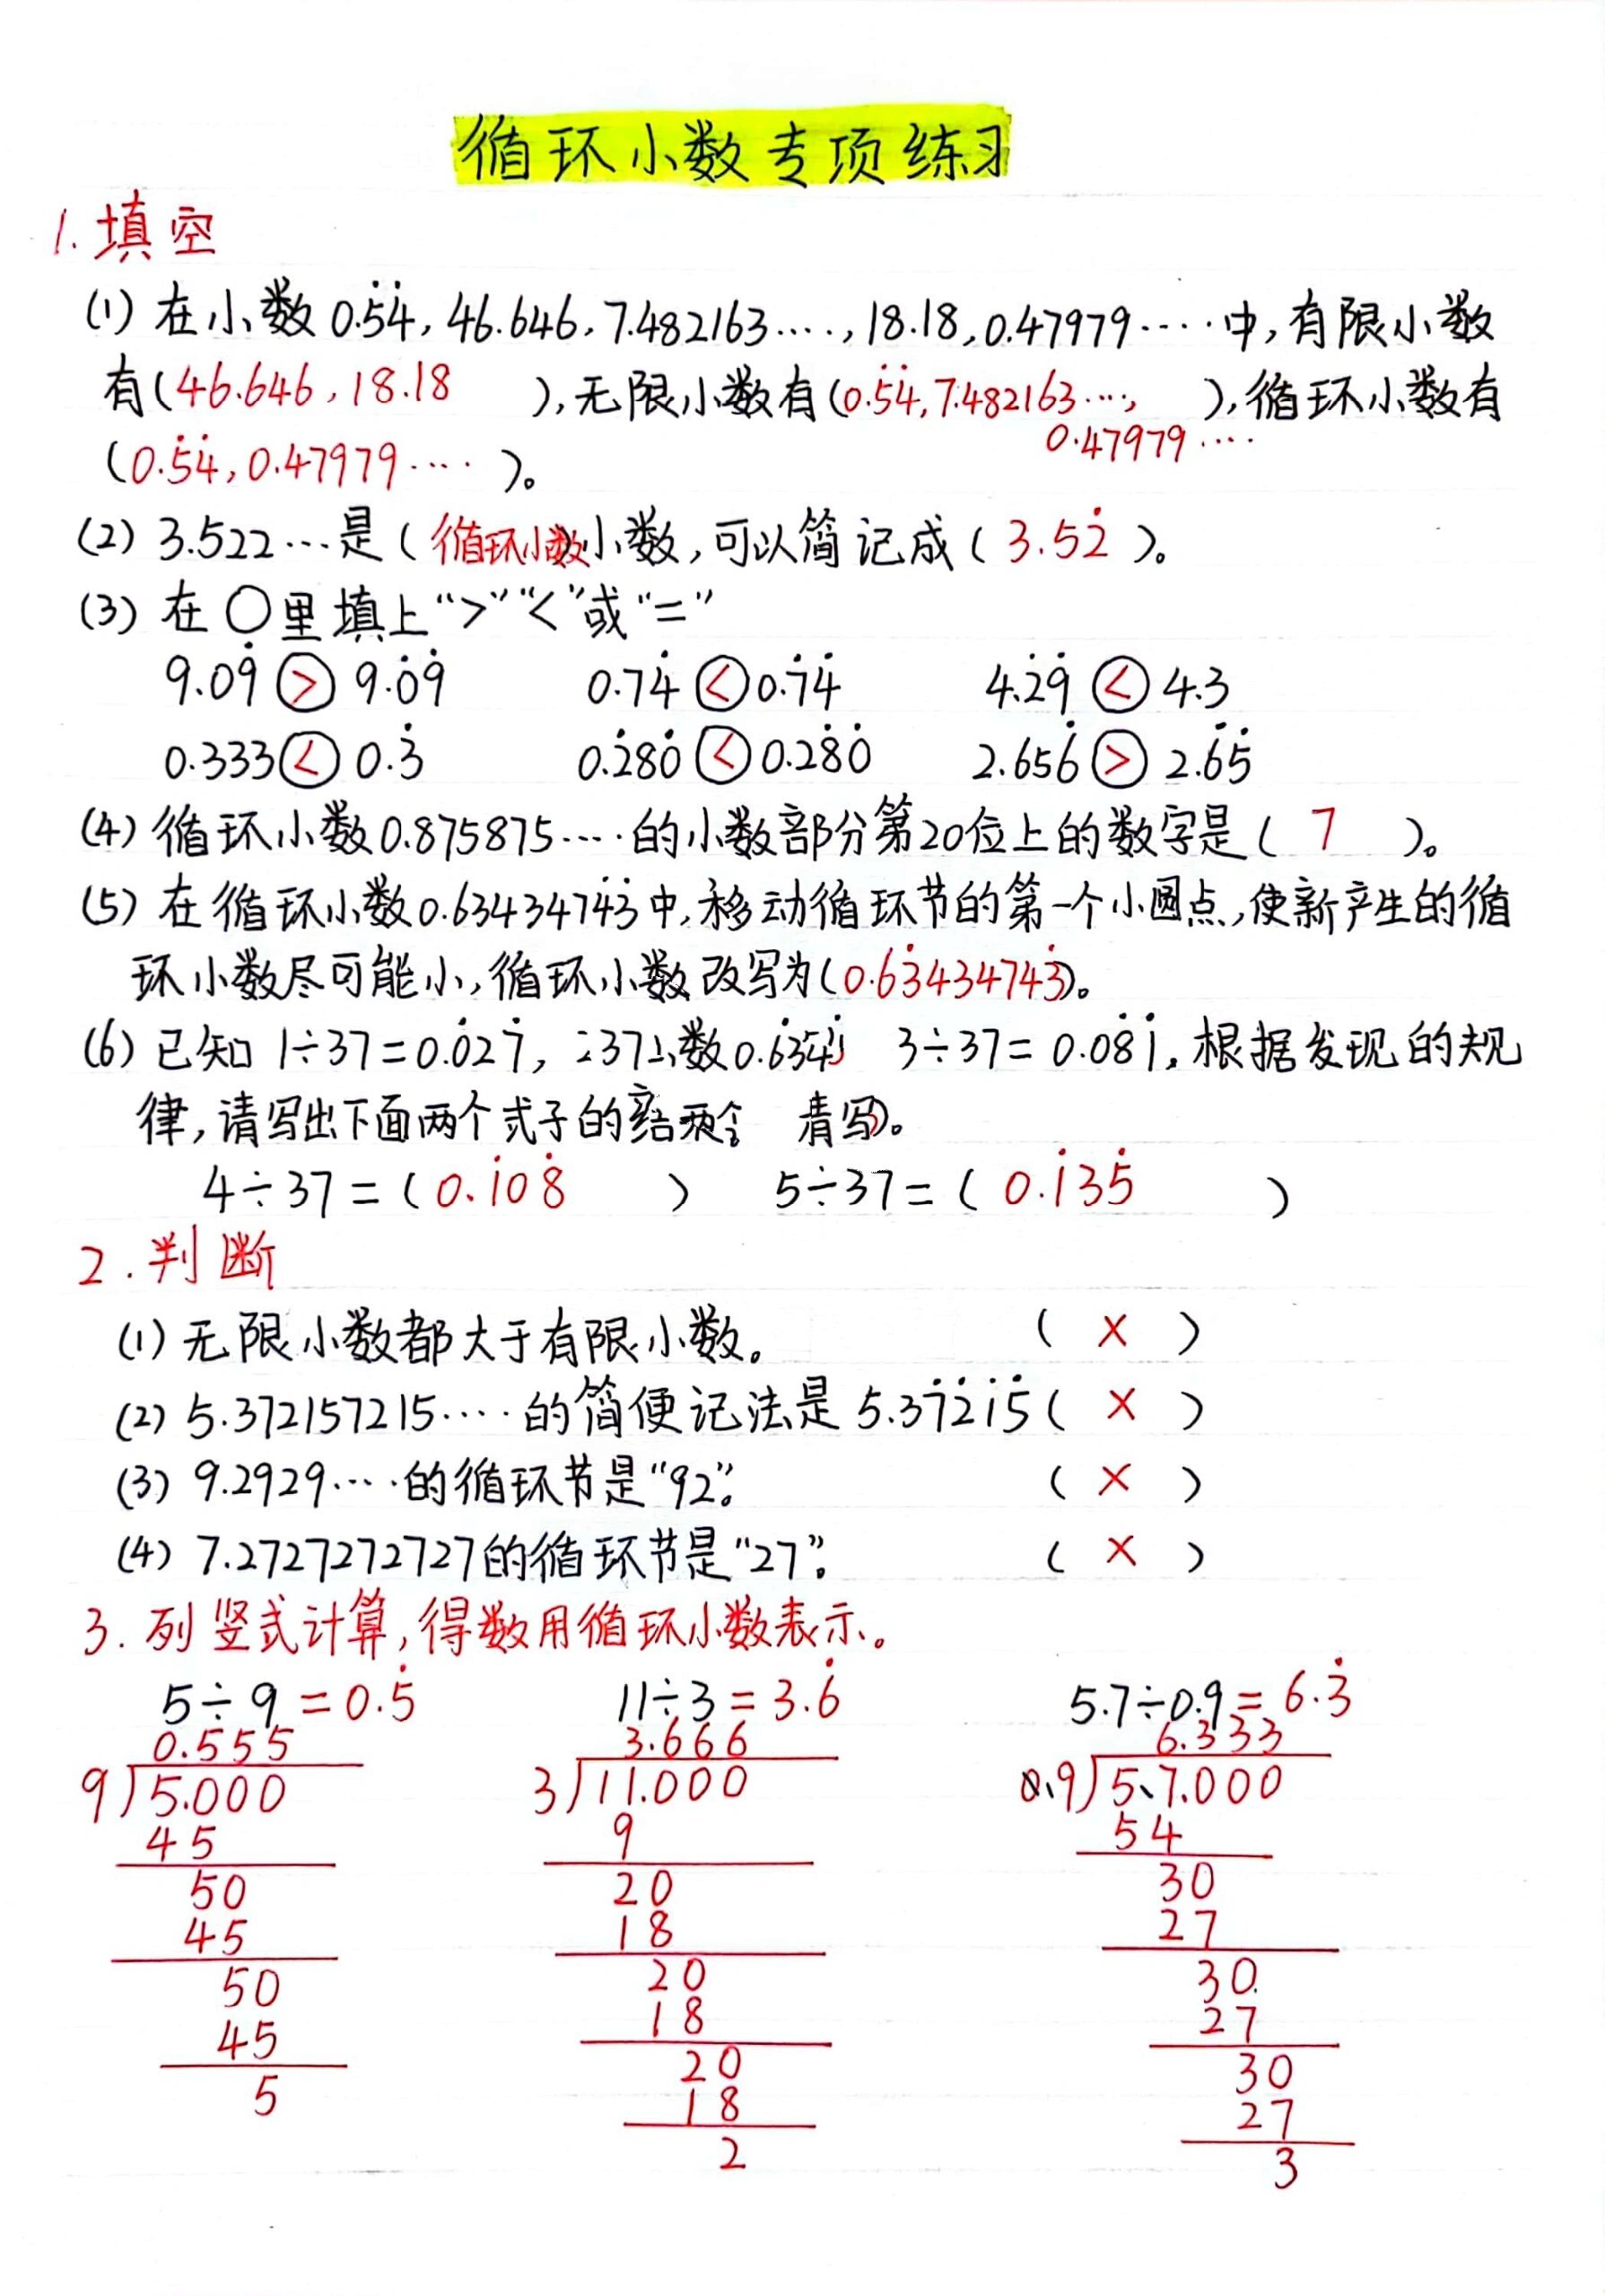 循环小数专项练习
1.填空
(1) 在小数0.5̇4̇, 46.646, 7.482163····, 18.18, 0.47979····中, 有限小数
有(46.646, 18.18 ), 无限小数有(0.5̇4̇, 7.482163···, 0.47979···· ), 循环小数有
(0.5̇4̇, 0.47979···· )。
(2) 3.522···是(循环小数小数, 可以简记成( 3.52̇ )。
(3) 在○里填上“>”“<”或“=”
9.09̇ > 9.0̇9̇ 0.74̇ < 0.7̇4̇ 4.2̇9̇ < 4.3
0.333 < 0.3̇ 0.2̇80̇ < 0.28̇0̇ 2.656̇ > 2.6̇5̇
(4) 循环小数0.875875····的小数部分第20位上的数字是( 7 )。
(5) 在循环小数0.6343474̇3̇中, 移动循环节的第一个小圆点, 使新产生的循
环小数尽可能小, 循环小数改写为(0.63̇434743̇)。
(6) 已知 1÷37=0.0̇27̇, 3÷37= 0.08̇1̇, 根据发现的规
律, 请写出下面两个式子的
4÷37=( 0.1̇08̇ ) 5÷37=( 0.1̇35̇ )
2.判断
(1) 无限小数都大于有限小数。 ( × )
(2) 5.372157215····的简便记法是5.37̇2̇1̇5̇( × )
(3) 9.2929····的循环节是“92”。 ( × )
(4) 7.2727272727的循环节是“27”。 ( × )
3. 列竖式计算, 得数用循环小数表示。
5÷9=0.5̇ 11÷3=3.6̇ 5.7÷0.9=6.3̇
0.555 3.666 6.333
9)5.000 3)11.000 0.9)5.7.000
45 9 54
50 20 30
45 18 27
50 20 30
45 18 27
5 20 30
18 27
2 3